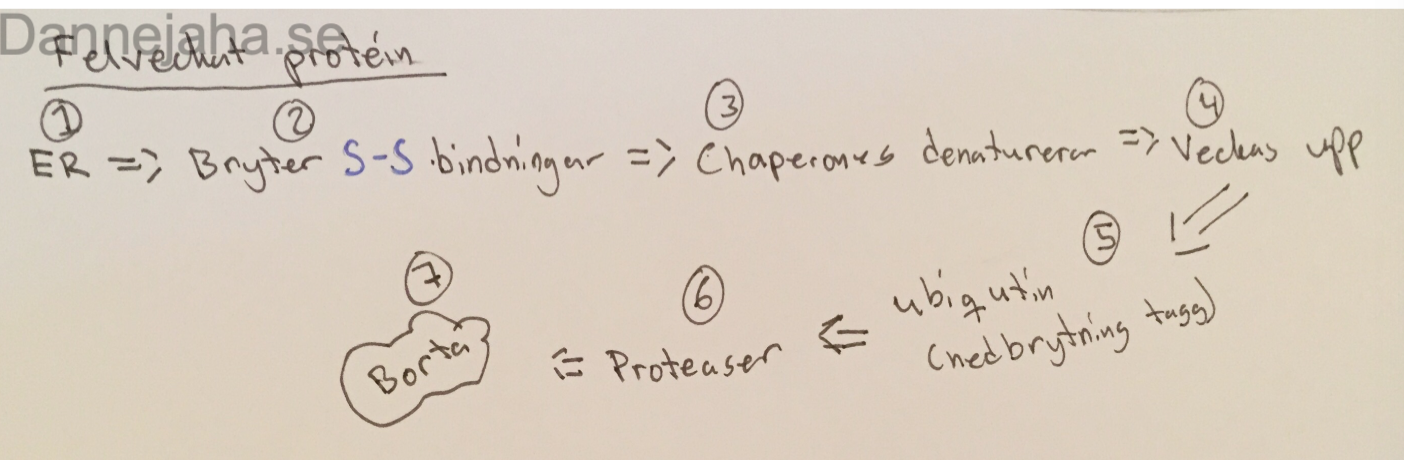 Dannejaha.se
Felveckat protéin
① ② ③ ④
ER => Bryter S-S bindningar => Chaperones denaturerar => Veckas upp
⑤
ubiqutin
(nedbrytning tagg)
⑥
<= Proteaser <=
⑦
Borta